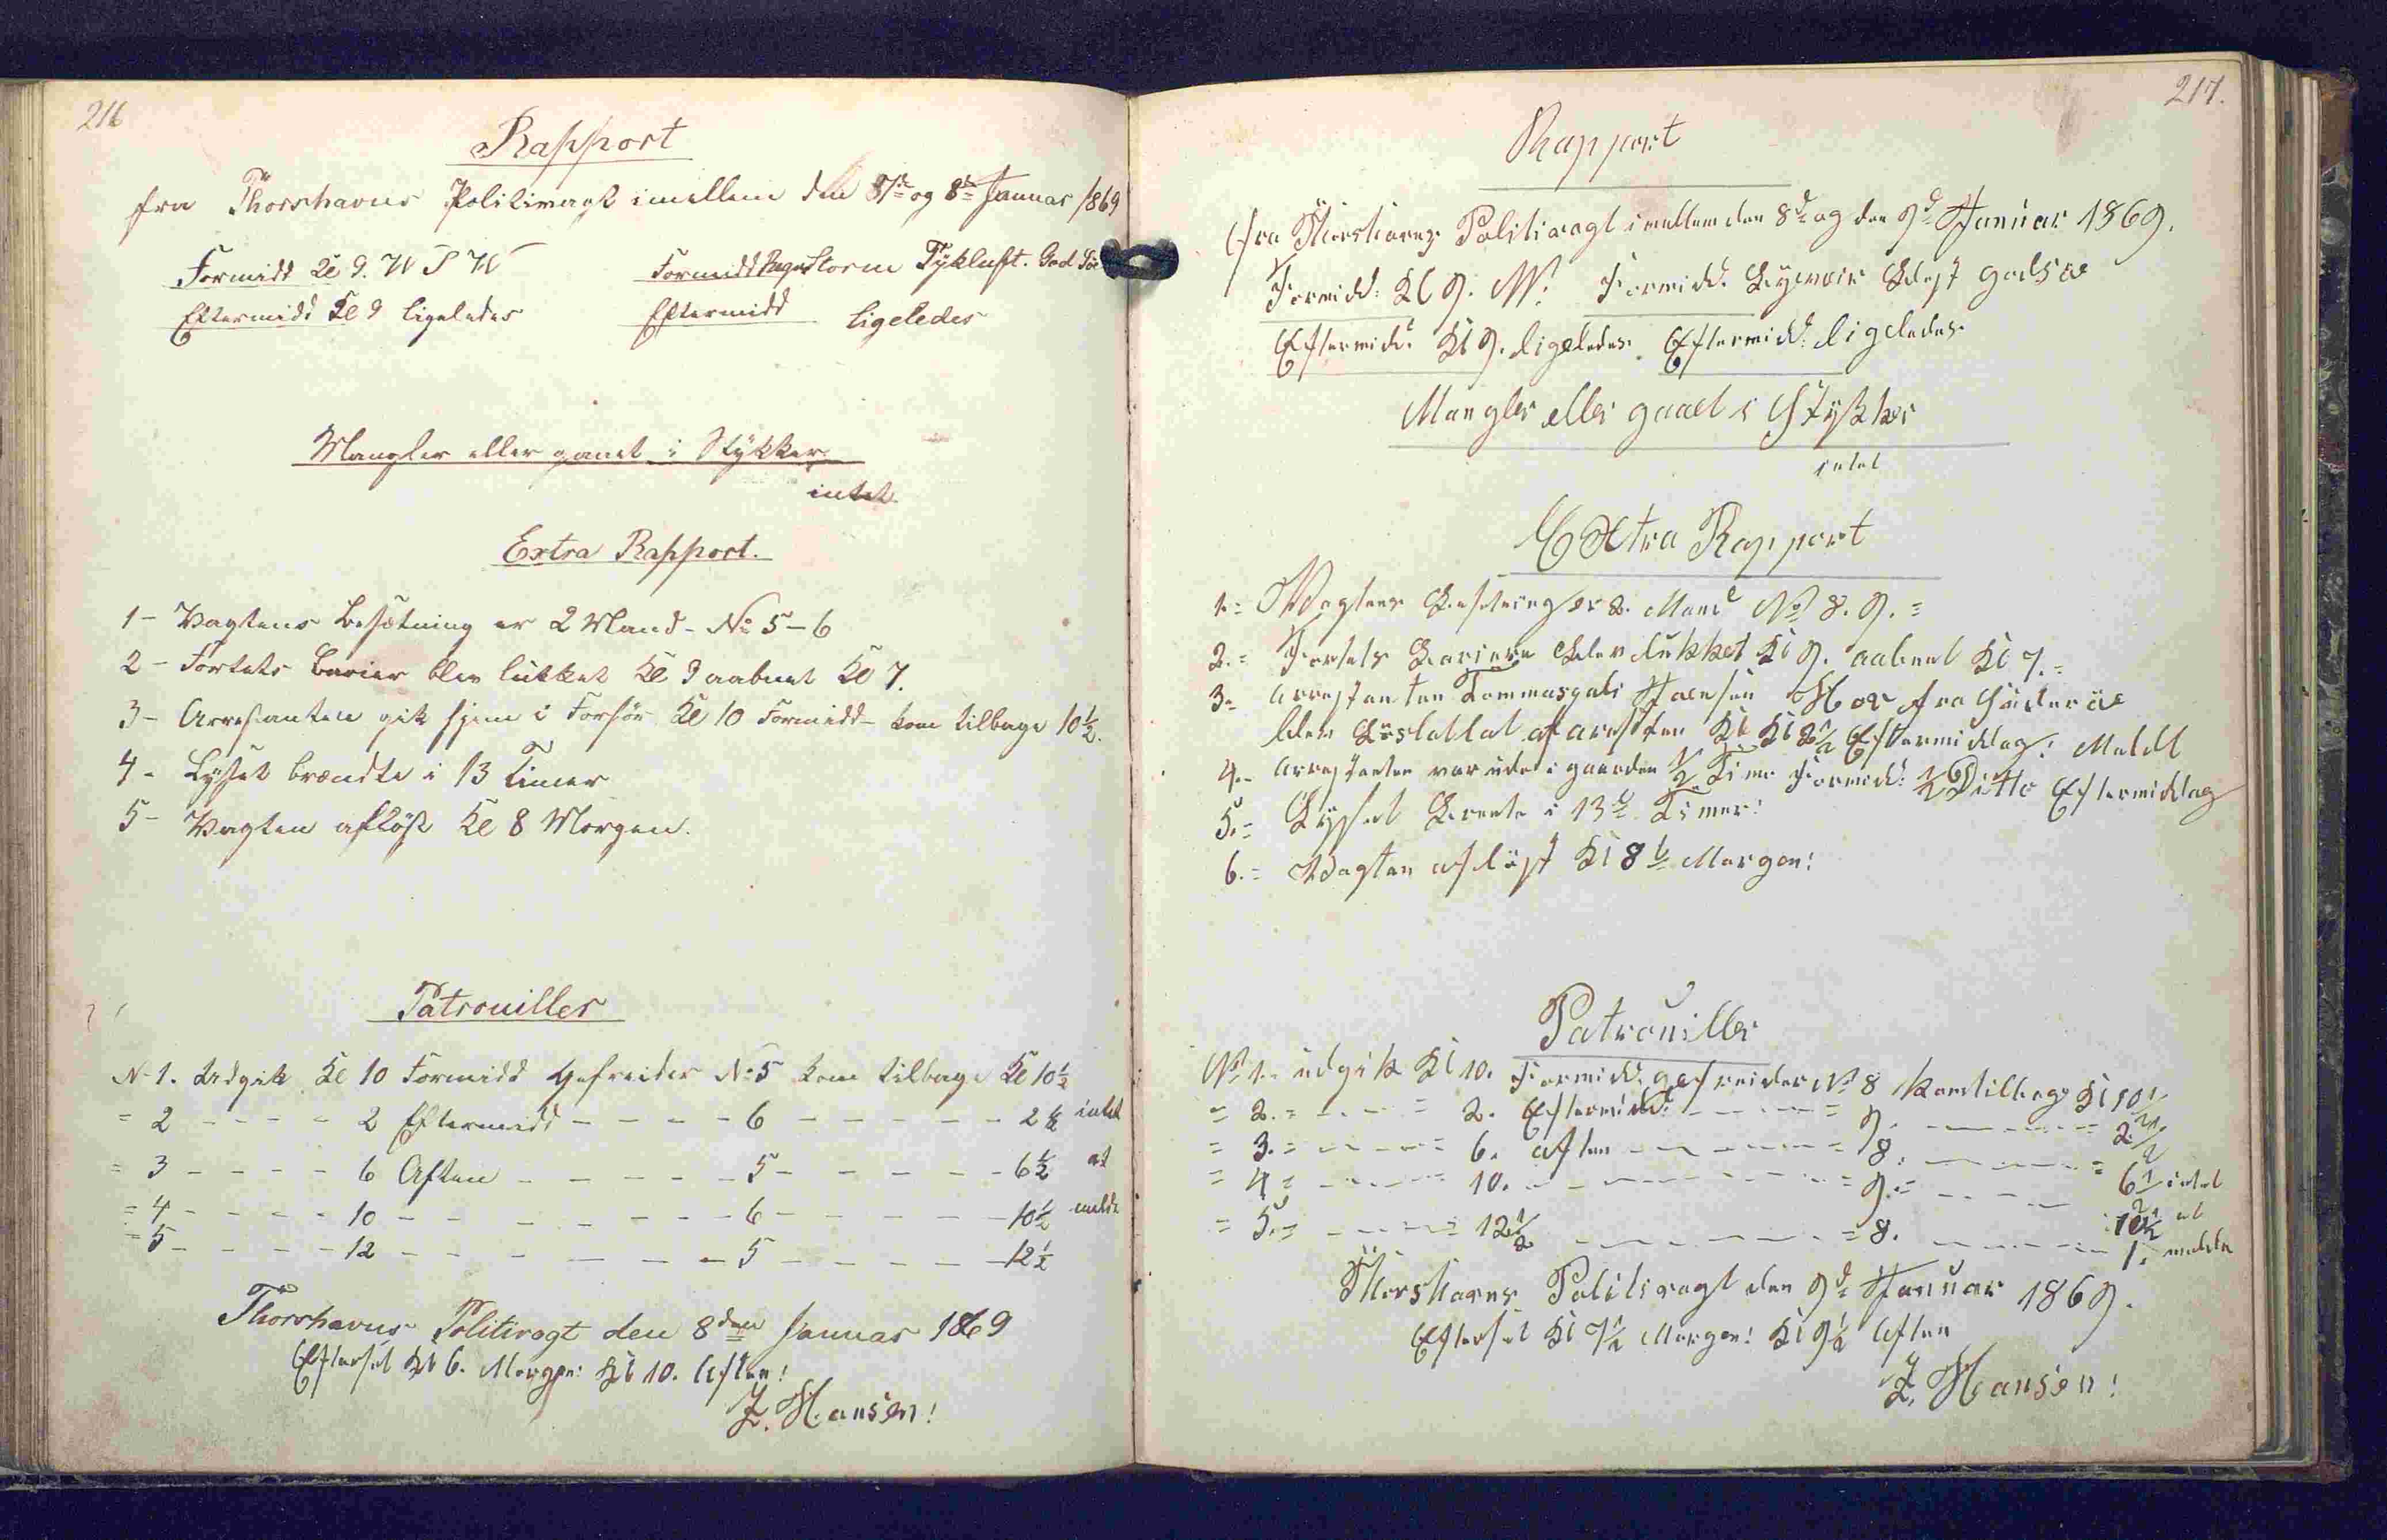 216
Rapport
fra Thorshavns Politivagt imellem den 7de og 8de Januar 1869
Formidd Kl 9. W S W Formidd Storm Tykluft. God
Eftermidd Kl 9 ligeledes Eftermidd ligeledes
Mangler eller gaaet i Stykker
intet
Extra Rapport.
1 - Vagtens Besætning er 2 Mand - No 5 - 6
2 - Fortets Barier blev lukket Kl 9 aabnet Kl 7.
3 - Arrestanten gik hjem i Forhør Kl 10 Formidd - kom tilbage 10½.
4 - Lyset brændte i 13 Timer
5 - Vagten afløst Kl 8 Morgen.
Patrouiller
No 1. Udgik Kl 10 Formidd Gefreider No 5 kom tilbage Kl 10½
= 2 - - - - 2 Eftermidd - - - - 6 - - - - - 2½ intet
= 3 - - - - 6 Aften - - - - - 5 - - - - - 6½ at
= 4 - - - - 10 - - - - - - - 6 - - - - - 10½ melde
= 5 - - - - 12 - - - - - - - 5 - - - - - 12½
Thorshavns Politivagt den 8den Januar 1869
Efterset Kl 6. Morgen: Kl 10. Aften!
Z. Hansen!
217.
Rapport
fra Thorshavns Politivagt imellem den 8d og den 9d Januar 1869.
Formidd: Kl 9. N. Formidd.
Eftermidd: Kl 9. ligeledes. Eftermidd: ligeledes.
Mangler eller gaaet i Stykker
intet
Extra Rapport
1. = Vagtens Besetning er 2. Mand No 8. 9. =
2. = Fortets Bariere blev lukket Kl 9. aabnet Kl 7. =
3 = Arrestanten Joensen fra Süderöe
blev af aresten Kl Eftermiddag: Meldt
4. - Arrestanten var ude i gaarden ½ Time Formidd: ½ Ditto Eftermiddag
5. = Lyset Brente i 13½ Timer!
6. = Vagten afløst Kl 8½ Morgen!
Patrouiller
No 1. udgik Kl 10. Formidd. gefreider No 8 kom tilbage Kl 10½
= 2. = - - - = 2. Eftermidd: - - - - = 9. - - - - = 2½
= 3. = - - - = 6. aften - - - - = 8. - - - - = 6½ intet
= 4 = - - - - 10. - - - - - - = 9. = - - - - 10½ at
= 5. = - - - = 12½ - - - - - = 8. - - - - 1. melde
Thorshavns Politivagt den 9d Januar 1869.
Efterset Kl 7½ Morgen! Kl 9½ Aften
Z. Hansen!